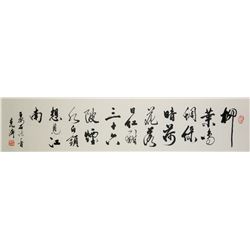 柳
葉鳴
蜩綠
暗荷
花落
日紅酣
三十六
陂煙
水白頭
想見江
南